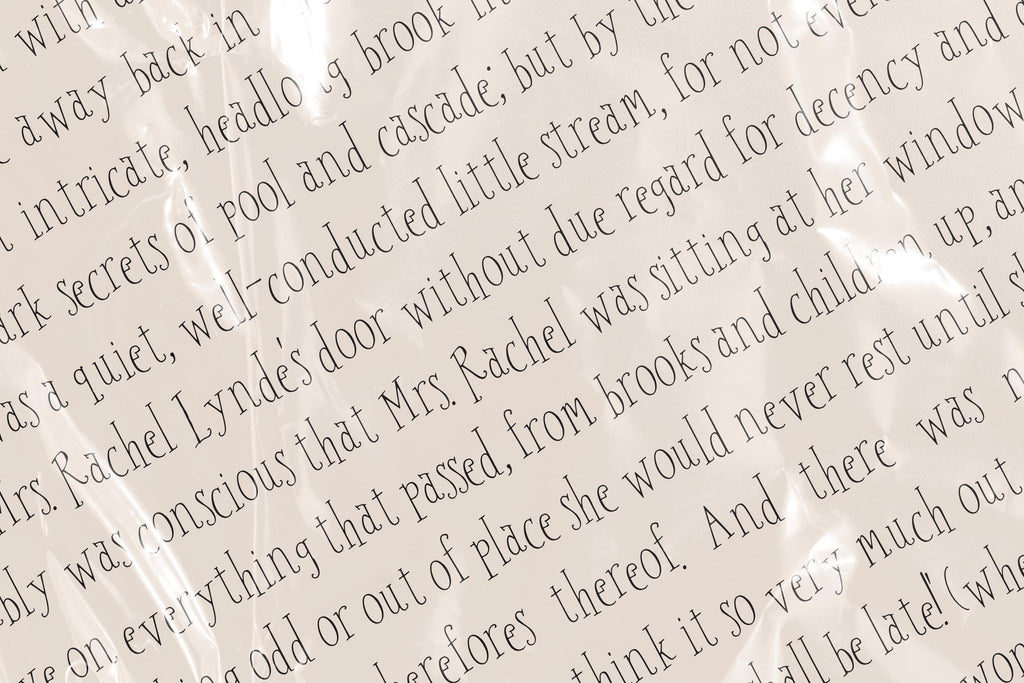 with a
away back in
intricate, headlong brook
ark secrets of pool and cascade; but by the
was a quiet, well-conducted little stream, for not even
Mrs. Rachel Lynde's door without due regard for decency and d
bly was conscious that Mrs. Rachel was sitting at her window
ve on everything that passed, from brooks and children up, an
ing odd or out of place she would never rest until sh
herefores thereof. And there was n
think it so very much out
hall be late!"(whe
wor